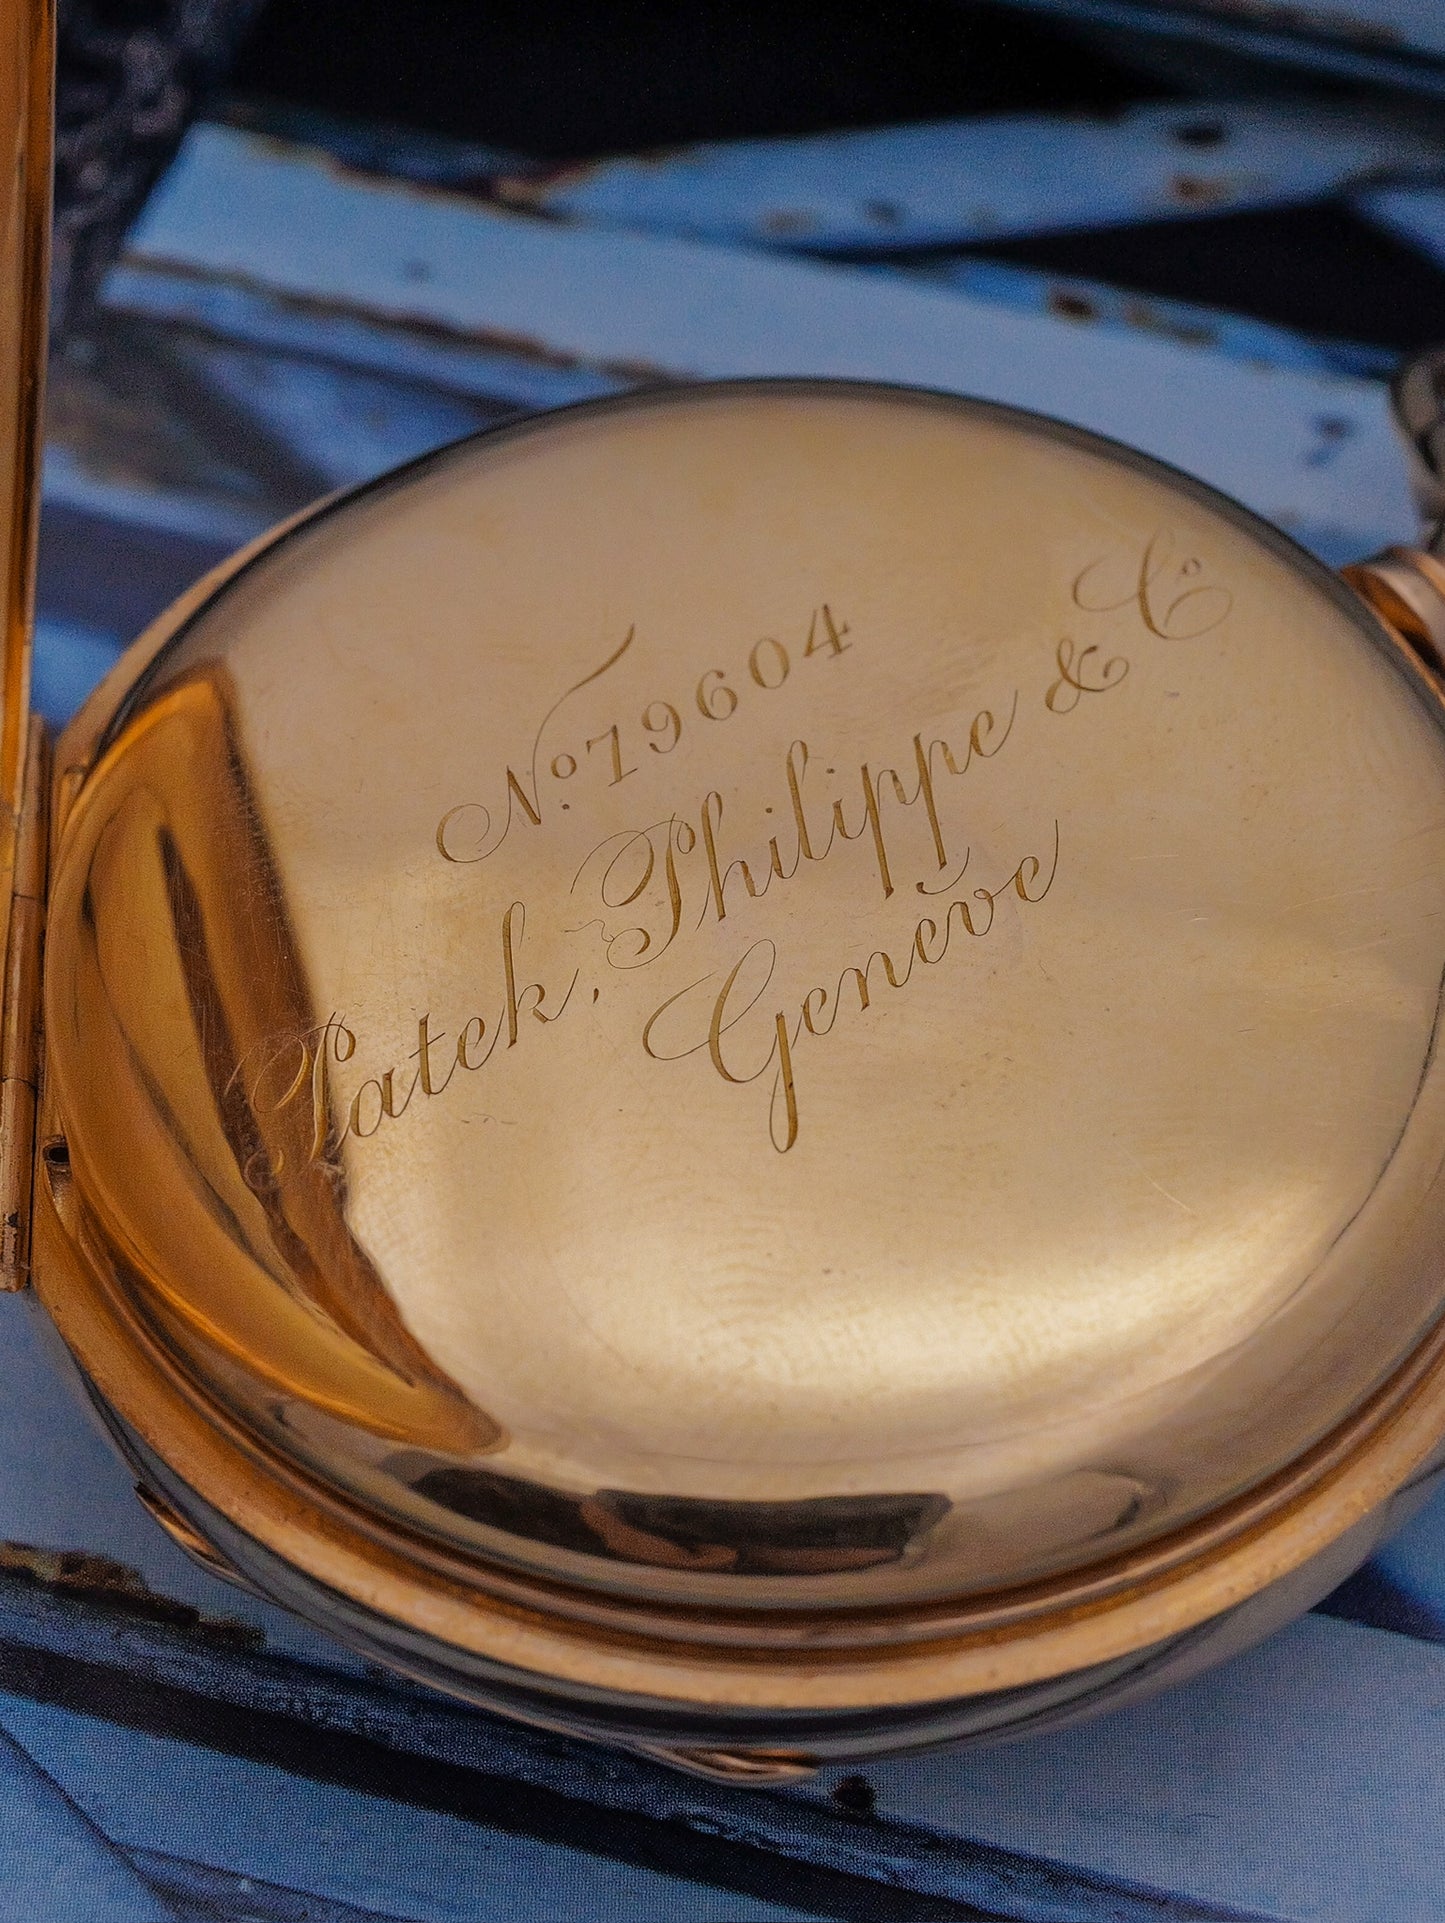 Nº 79604
Patek, Philippe & Cº
Genève